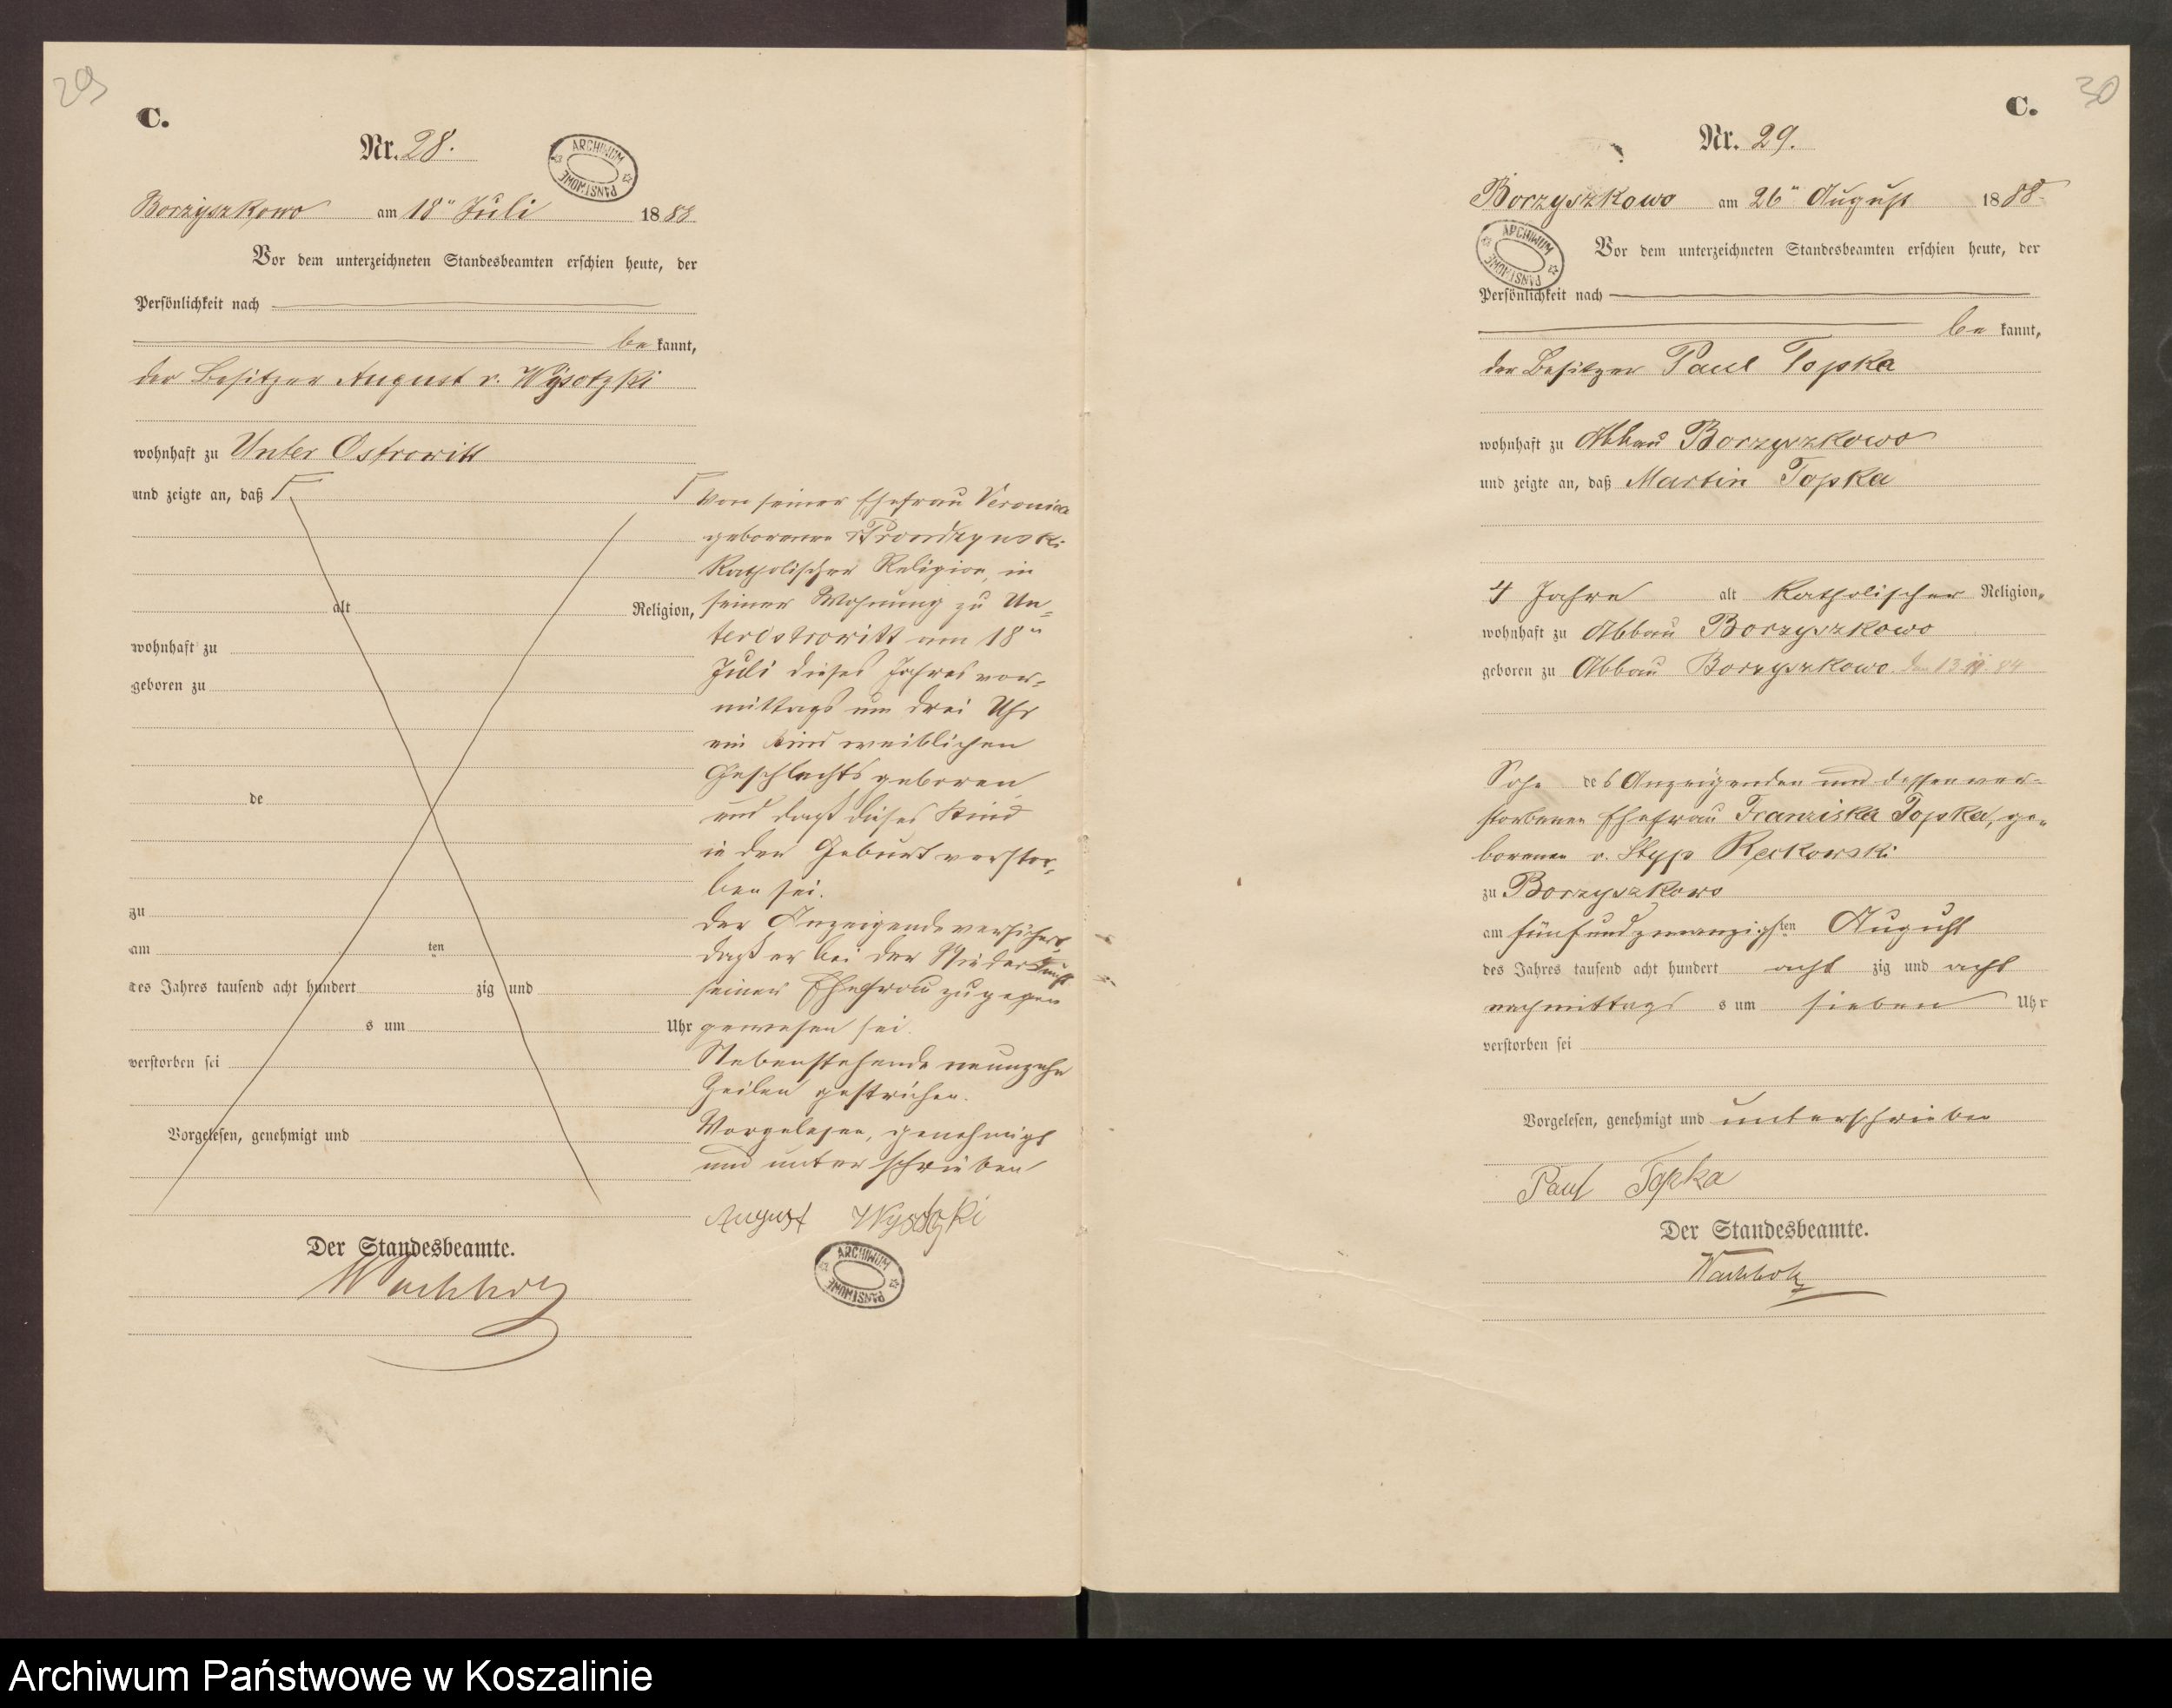 29
C.
Nr. 28.
ARCHIWUM PAŃSTWOWE
Borzyszkowo am 18ⁿ Juli 1888
Vor dem unterzeichneten Standesbeamten erschien heute, der
Persönlichkeit nach
be kannt,
der Besitzer August v. Wysotzki
wohnhaft zu Unter Ostrowitt
und zeigte an, daß
alt Religion,
wohnhaft zu
geboren zu
de
zu
am ten
des Jahres tausend acht hundert zig und
s um Uhr
verstorben sei
Vorgelesen, genehmigt und
von seiner Ehefrau Veronica
geborenen v Prondzynski
Katholischer Religion, in
seiner Wohnung zu Un-
terostrowitt am 18ⁿ
Juli dieses Jahres vor-
mittags um drei Uhr
ein Kind weiblichen
Geschlechts geboren
und daß dieses Kind
in der Geburt verstor-
ben sei.
Der Anzeigende versichert,
daß er bei der Niederkunft
seiner Ehefrau zugegen
gewesen sei.
Nebenstehende neunzehn
Zeilen gestrichen.
Vorgelesen, genehmigt
und unterschrieben
August Wysotzki
ARCHIWUM PAŃSTWOWE
Der Standesbeamte.
Wachholz
30
C.
Nr. 29.
Borzyszkowo am 26ⁿ August 1888.
ARCHIWUM PAŃSTWOWE
Vor dem unterzeichneten Standesbeamten erschien heute, der
Persönlichkeit nach
be kannt,
der Besitzer Paul Topka
wohnhaft zu Abbau Borzyszkowo
und zeigte an, daß Martin Topka
4 Jahre alt Katholischer Religion,
wohnhaft zu Abbau Borzyszkowo
geboren zu Abbau Borzyszkowo den 13 84
Sohn des Anzeigenden und dessen ver-
storbenen Ehefrau Franziska Topka, ge-
borenen v. Styp Reckowski
zu Borzyszkowo
am fünfundzwanzigsten August
des Jahres tausend acht hundert acht zig und acht
nachmittags s um sieben Uhr
verstorben sei
Vorgelesen, genehmigt und unterschrieben
Paul Topka
Der Standesbeamte.
Wachholz
Archiwum Państwowe w Koszalinie